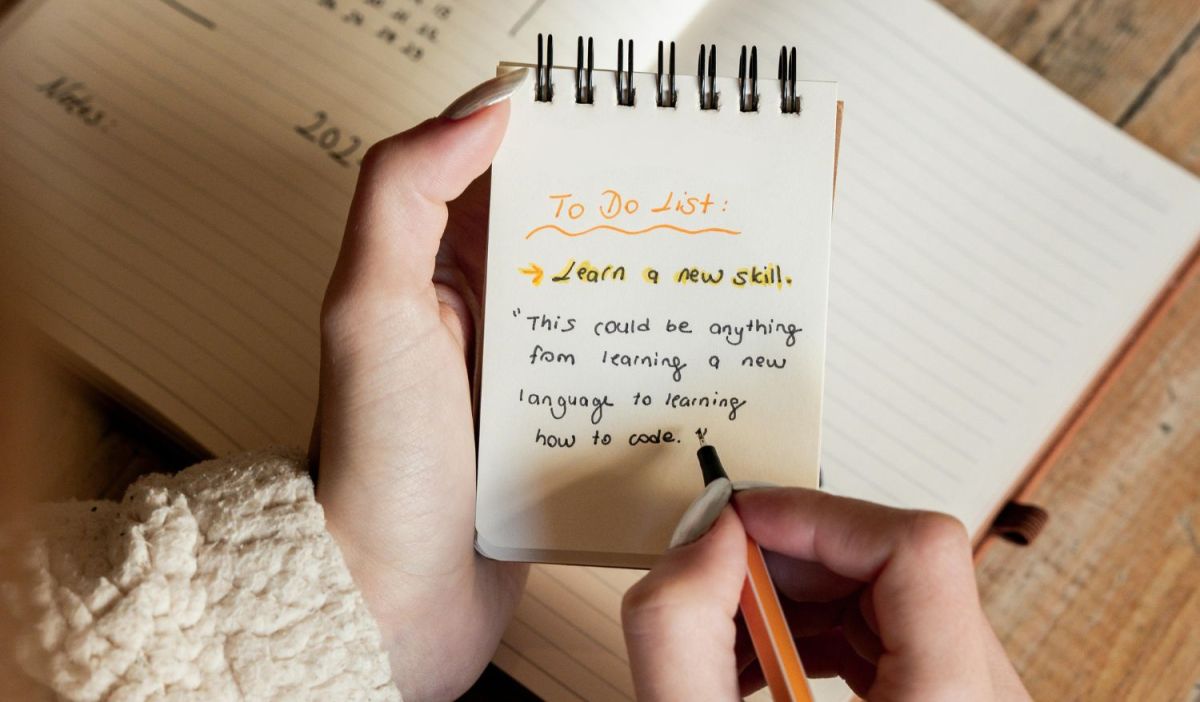 Notes:
To Do List:
→ Learn a new skill.
"This could be anything
from learning a new
language to learning
how to code."